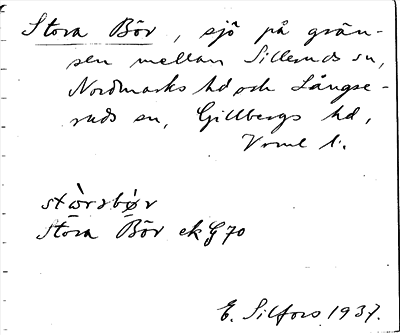 Stora Bör, sjö på grän-
sen mellan Silleruds sn,
Nordmarks hd och Långse-
ruds sn, Gillbergs hd,
Vrml l.
stòrabø̀r
Stora Bör ek G 70
E. Silfors 1937.